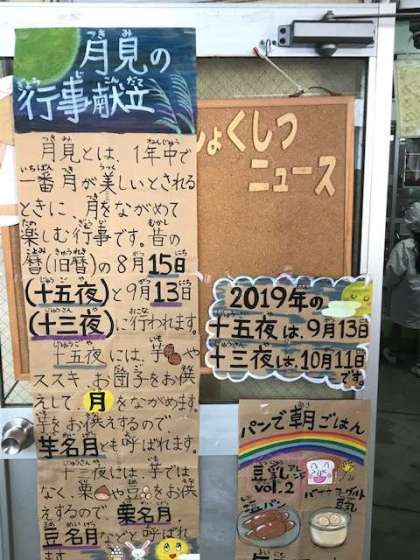 月見の
行事献立
月見とは、1年中で
一番月が美しいとされる
ときに、月をながめて
楽しむ行事です。昔の
暦(旧暦)の8月15日
(十五夜)と9月13日
(十三夜)に行われます。
十五夜には、芋や
ススキ、お団子をお供
えして月をながめます。
芋をお供えするので
芋名月とも呼ばれます。
十三夜には芋では
なく、栗や豆をお供
えするので栗名月
豆名月などと呼ばれ
ます
しょくしつ
ニュース
2019年の
十五夜は、9月13日
十三夜は、10月11日
です。
パンで朝ごはん
豆乳
vol.2
塩パン
豆乳